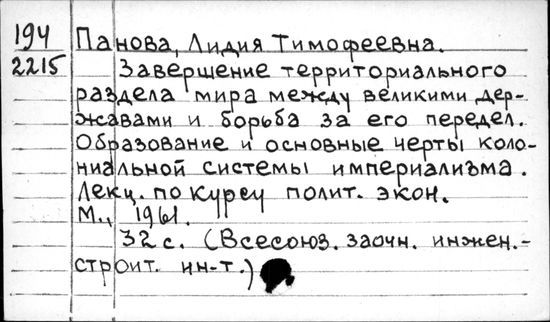 194
2215
Панова, Лидия Тимофеевна.
Завершение территориального
раздела мира между великими дер-
жавами и борьба за его передел.
Образование и основные черты коло-
ниальной системы империализма.
Лекц. по курсу полит. экон.
М., 1961.
32 с. (Всесоюз. заочн. инжен.-
строит. ин-т.)